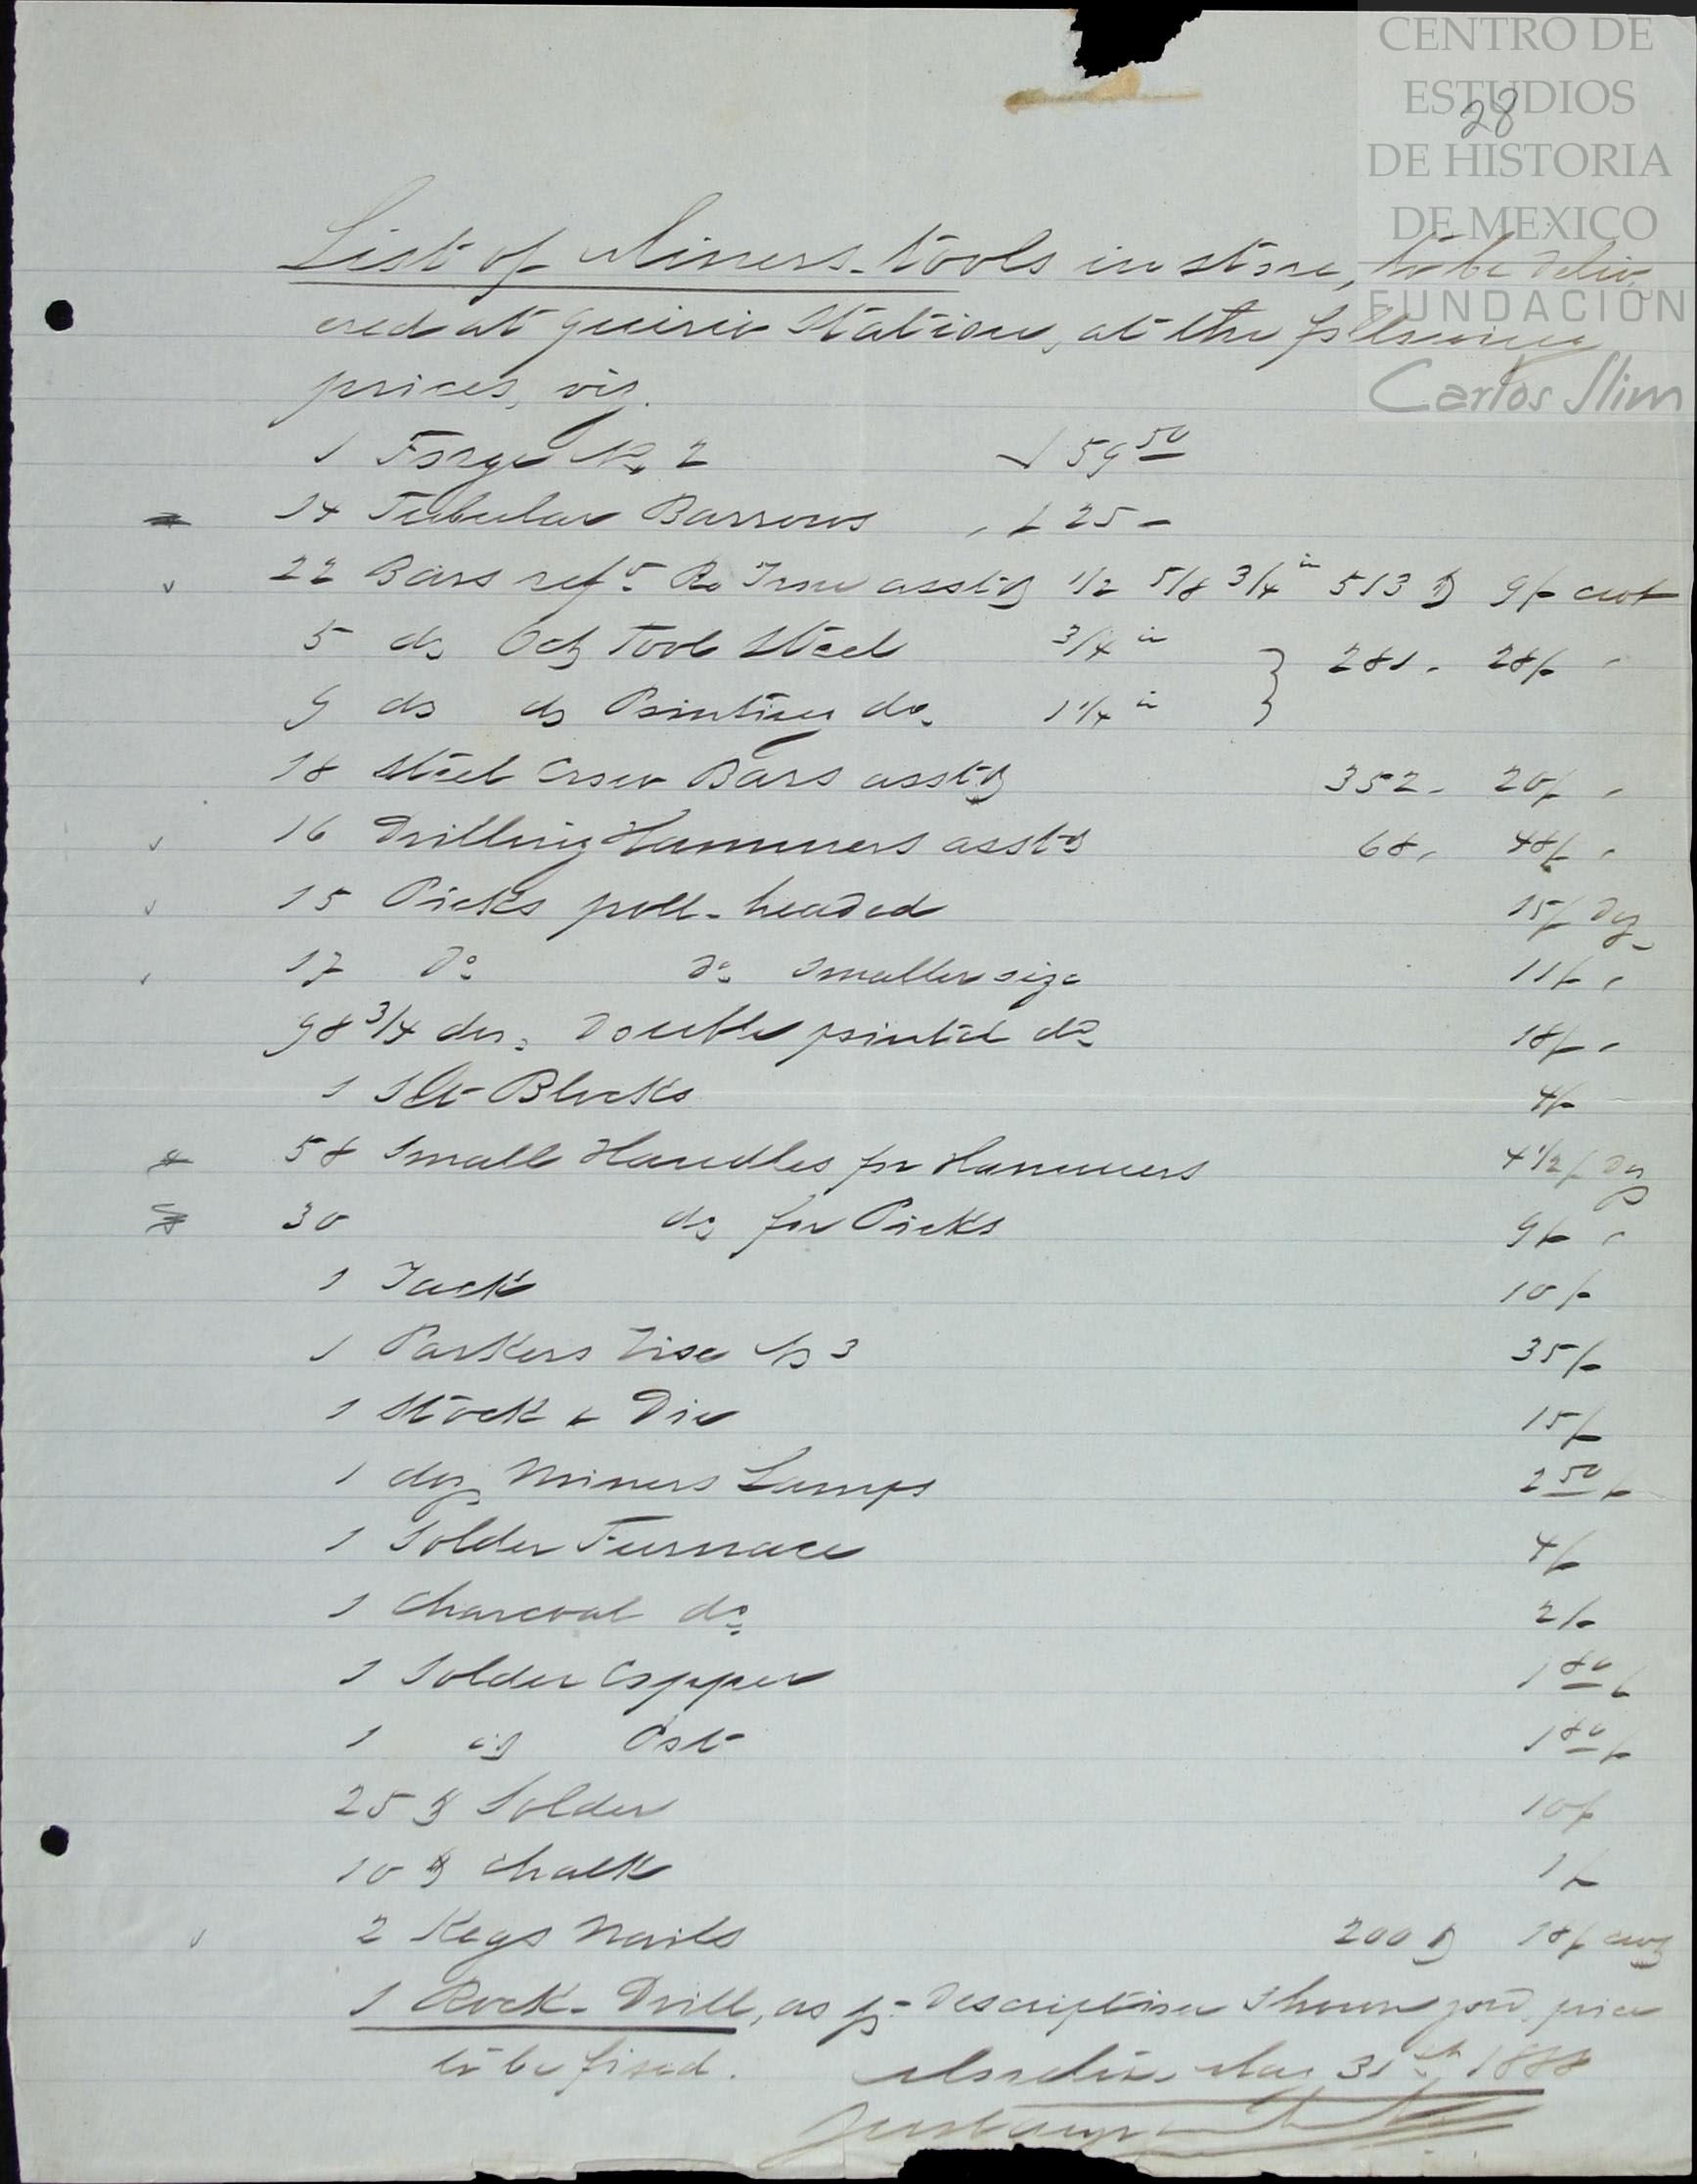 CENTRO DE
ESTUDIOS
28
DE HISTORIA
DE MEXICO
FUNDACIÓN
Carlos Slim
List of Miners-tools in store, to be deliv-
ered at Station, at the following
prices, viz.
1 Forge No. 2 $ 59 50
14 Tubular Barrows , $ 25 -
22 Bars refd. Ro Iron asstd 1/2 5/8 3/4 in 513 lb 9$ cwt
5 do Octg Tool Steel 3/4 in } 281 . 28$ "
9 do do Pointing do. 1 1/4 in
18 Steel Crow Bars asstd 352 . 20$ "
16 Drilling Hammers asstd 68 , 48$ "
15 Picks poll-headed 15$ Dz
17 Do do smaller size 11$ "
98 3/4 dz. Double pointed do 18$ "
1 Set Blocks 4$
58 Small Handles for Hammers 4 1/2 $ Dz
30 do for Picks 9$ "
1 Jack 10$
1 Parkers Vise No 3 35$
1 Stock & Die 15$
1 doz Miners Lamps 2 50 $
1 Solder Furnace 4$
1 Charcoal do 2$
1 Solder Copper 1 80 $
1 do Pot 1 80 $
25 lb Solder 10$
10 lb Chalk 1$
2 Kegs Nails 200 lb 18$ cwt
1 Rock-Drill, as p. Description shown you, price
to be fixed.
May 31st 1888